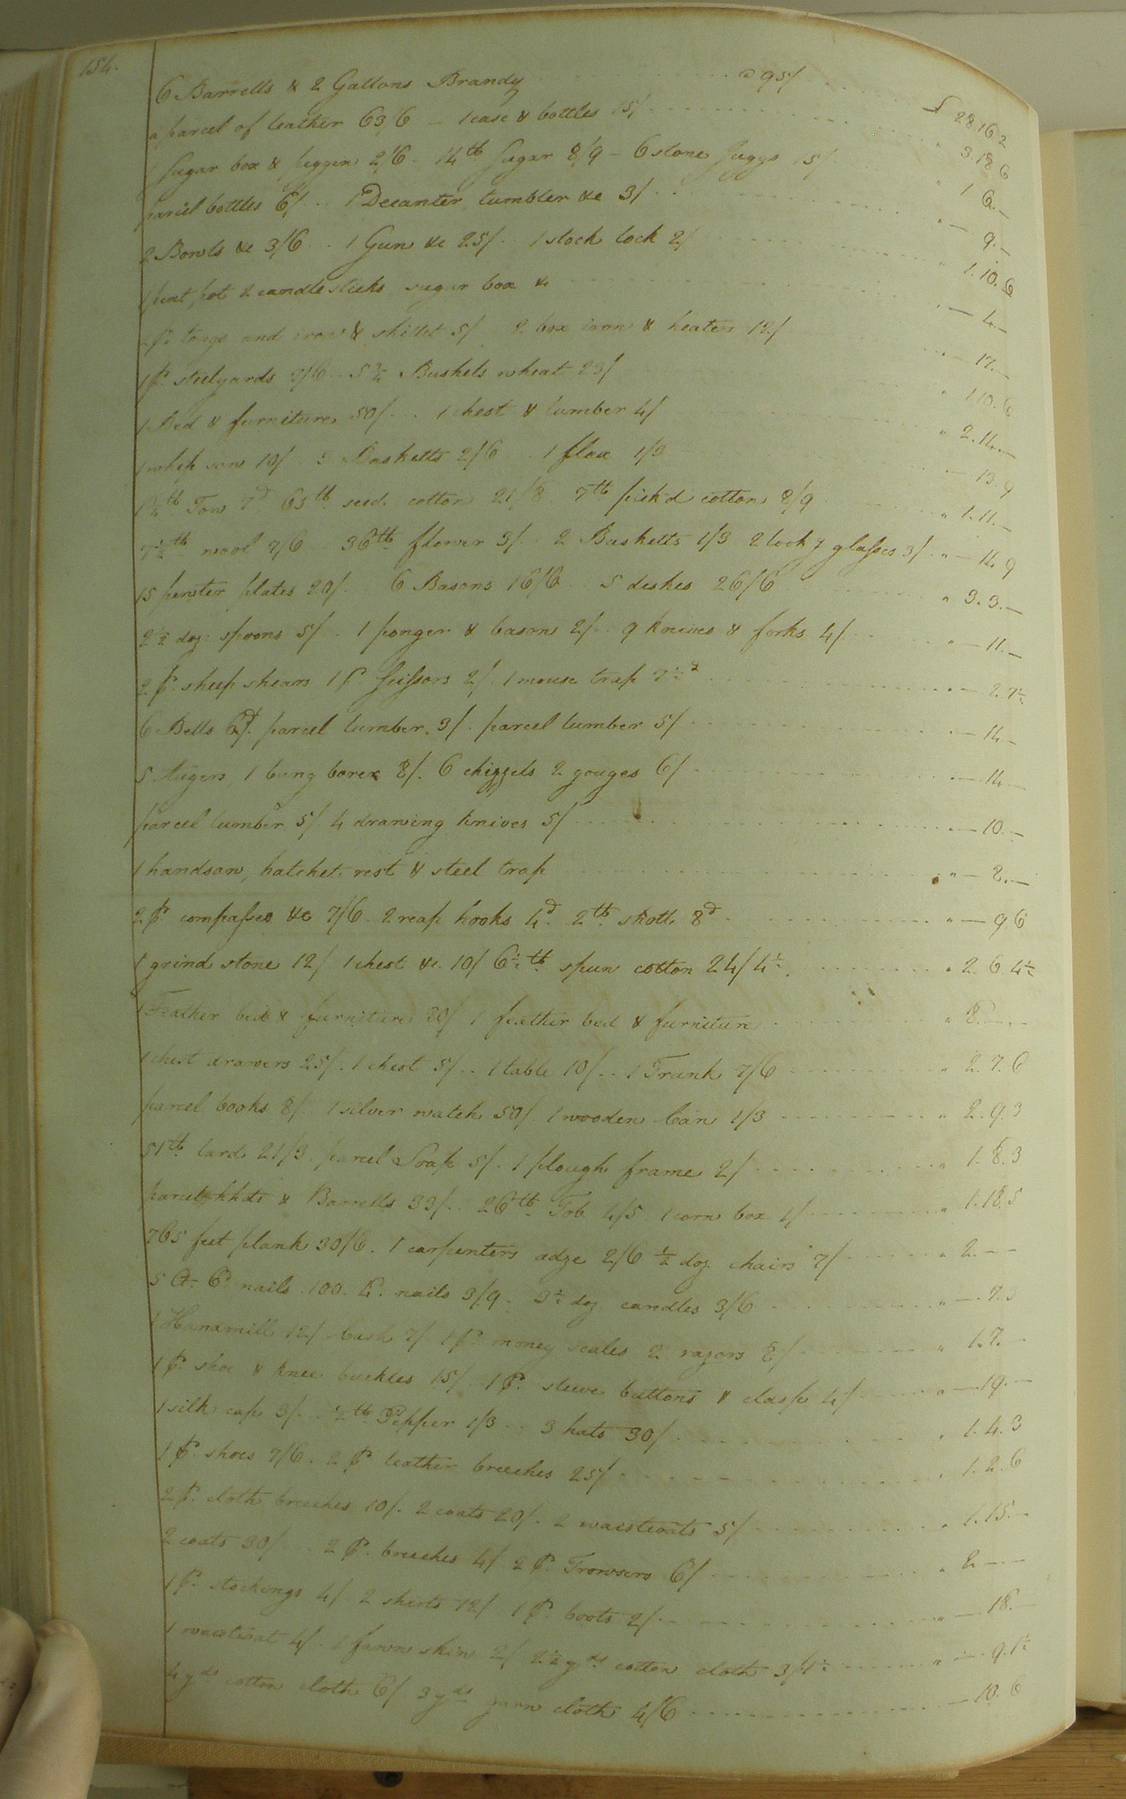 154.
6 Barrells & 2 Gallons Brandy @ 95/ £ 28 16 2
a parcel of leather 63/6 — 1 case & bottles 15/ " 3. 18 6
1 Sugar box & 2/6 14lb Sugar 8/9 — 6 stone Juggs 15/ " 1 6. —
parcel bottles 6/ .. 1 Decanter, tumbler &c 3/ " — 9. —
2 Bowls &c 3/6 .. 1 Gun &c 25/. 1 stock lock 2/ " 1. 10. 6
1 pint pot 2 candlesticks sugar box & " — 4. —
1 pr. tongs and iron & skillet 5/ 2 box iron & heaters 12/ " — 17. —
1 pr. steelyards 7/6 .. 5¾ Bushels wheat 23/ " 1. 10. 6
1 Bed & furniture 50/ .. 1 chest & lumber 4/ " 2. 14. —
1 whip saw 10/ .. Basketts 2/6 1 flax 1/3 " — 13. 9
lb Tow 7d 65lb seed cotton 21/8 7lb pick'd cotton 8/9 " 1. 11. —
7½lb wool 7/6 36lb flower 3/. 2 Basketts 1/3 2 looking glasses 3/. " — 14 9
15 pewter plates 20/. 6 Basons 16/6 .. 5 dishes 26/6 " 3. 3. —
2½ doz: spoons 5/. 1 & basons 2/. 9 knives & forks 4/ " — 11. —
2 pr. sheep shears 1 pr. scissors 2/. 1 mouse trap 7½d " — 2. 7½
6 Bells 6/. parcel lumber. 3/. parcel lumber 5/ " — 14 —
5 Augers 1 bung borer 8/. 6 chizzels 2 gouges 6/ " — 14 —
parcel lumber 5/ 4 drawing knives 5/ " — 10. —
1 handsaw, hatchet, rest & steel trap " — 8. —
2 pr. compasses &c 7/6 2 reap hooks 4d. 2lb. shott 8d " — 9 6
1 grind stone 12/ 1 chest &c. 10/ 6½lb. spun cotton 24/4½ " 2. 6 4½
1 Feather bed & furniture 80/ 1 feather bed & furniture " 8. — —
1 chest drawers 25/. 1 chest 5/.. 1 table 10/.. 1 Trunk 7/6 " 2. 7. 6
parcel books 8/. 1 silver watch 50/ 1 wooden Can 1/3 " 2. 9. 3
51lb. lard 21/3. parcel Soap 5/. 1 plough frame 2/ " 1. 8. 3
parcel hhds & Barrells 33/.. 26lb. Tob 4/5 1 corn box 1/ " 1. 18. 5
765 feet plank 30/6. 1 carpenters adze 2/6 ½ doz. chairs 7/ " 2. — —
nails 100. nails 3/9 doz candles 3/6 " — 7. 3
1 Handmill 12/ Cash 7/ 1 pr. money scales 2 razors 8/ " 1. 7. —
1 pr. shoe & knee buckles 15/ 1 pr. sleeve buttons & clasp 4/ " — 19. —
1 silk cap 3/.. ½lb Pepper 1/3 .. 3 hats 30/ " 1. 4. 3
1 pr. shoes 7/6. 2 pr leather breeches 25/ " 1. 2. 6
2 pr. cloth breeches 10/. 2 coats 20/. 2 waistcoats 5/ " 1. 15. —
2 coats 30/ .. 2 pr. breeches 4/ 2 pr. Trowsers 6/ " 2. — —
1 pr. stockings 4/ 2 shirts 12/ 1 pr. boots 2/ " — 18. —
1 waistcoat 4/. 1 fawn skin 2/ 2½ yds cotton cloth 3/1½ " — 9. 1½
4 yds cotton cloth 6/ 3 yds yarn cloth 4/6 — 10. 6